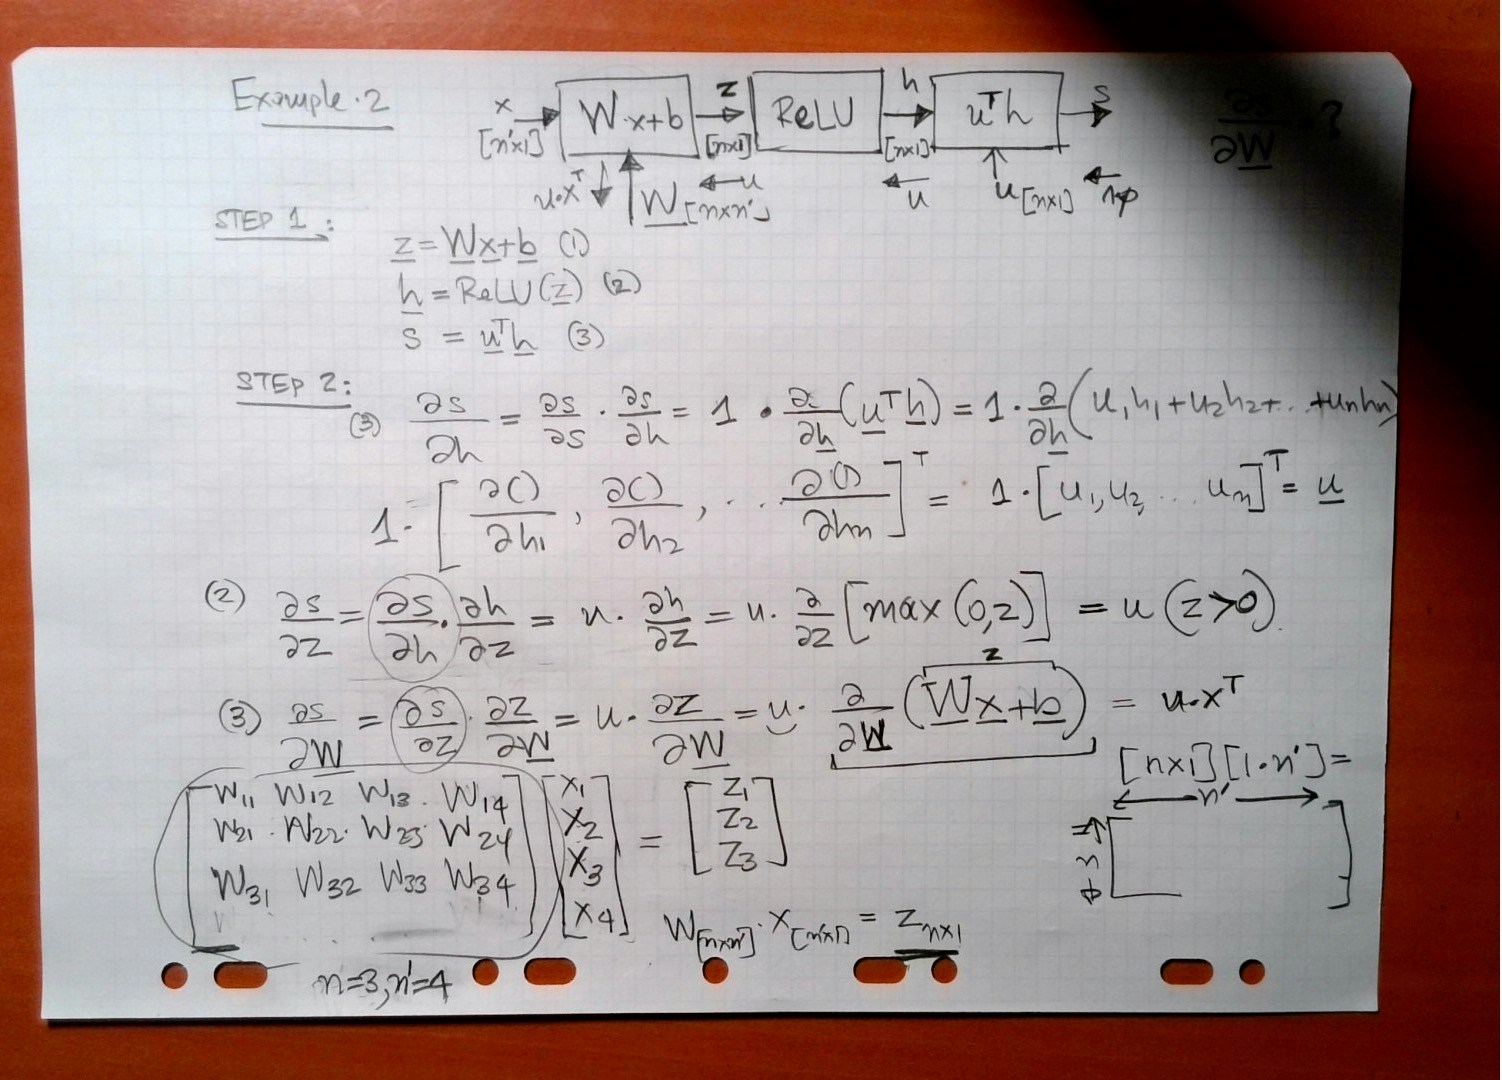 Example.2
x [n'x1] → W.x+b → z [nx1] → ReLU → h [nx1] → uᵀh → s
∂s/∂W = ?
u.xᵀ W [nxn'] ← u ← u u [nx1] ← 1
STEP 1:
z = Wx+b (1)
h = ReLU(z) (2)
s = uᵀh (3)
STEP 2:
(3) ∂s/∂h = ∂s/∂s · ∂s/∂h = 1 · ∂/∂h (uᵀh) = 1 · ∂/∂h (u₁h₁+u₂h₂+...+unhn)
1· [∂()/∂h₁, ∂()/∂h₂, ... ∂()/∂hn]ᵀ = 1·[u₁, u₂, ... un]ᵀ = u
(2) ∂s/∂z = ∂s/∂h · ∂h/∂z = u · ∂h/∂z = u · ∂/∂z [max(0,z)] = u (z>0)
z
(3) ∂s/∂W = ∂s/∂z · ∂z/∂W = u · ∂z/∂W = u · ∂/∂W (Wx+b) = u.xᵀ
[nx1][1·n'] =
n'
n
W11 W12 W13 W14 x1 z1
W21 W22 W23 W24 x2 = z2
W31 W32 W33 W34 x3 z3
x4
W[nxn'] · x[n'x1] = z nx1
n=3, n'=4